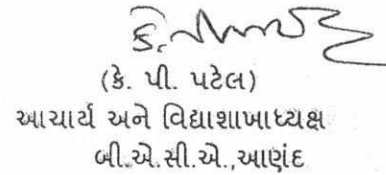 (કે. પી. પટેલ)
આચાર્ય અને વિદ્યાશાખાધ્યક્ષ
બી.એ.સી.એ.,આણંદ